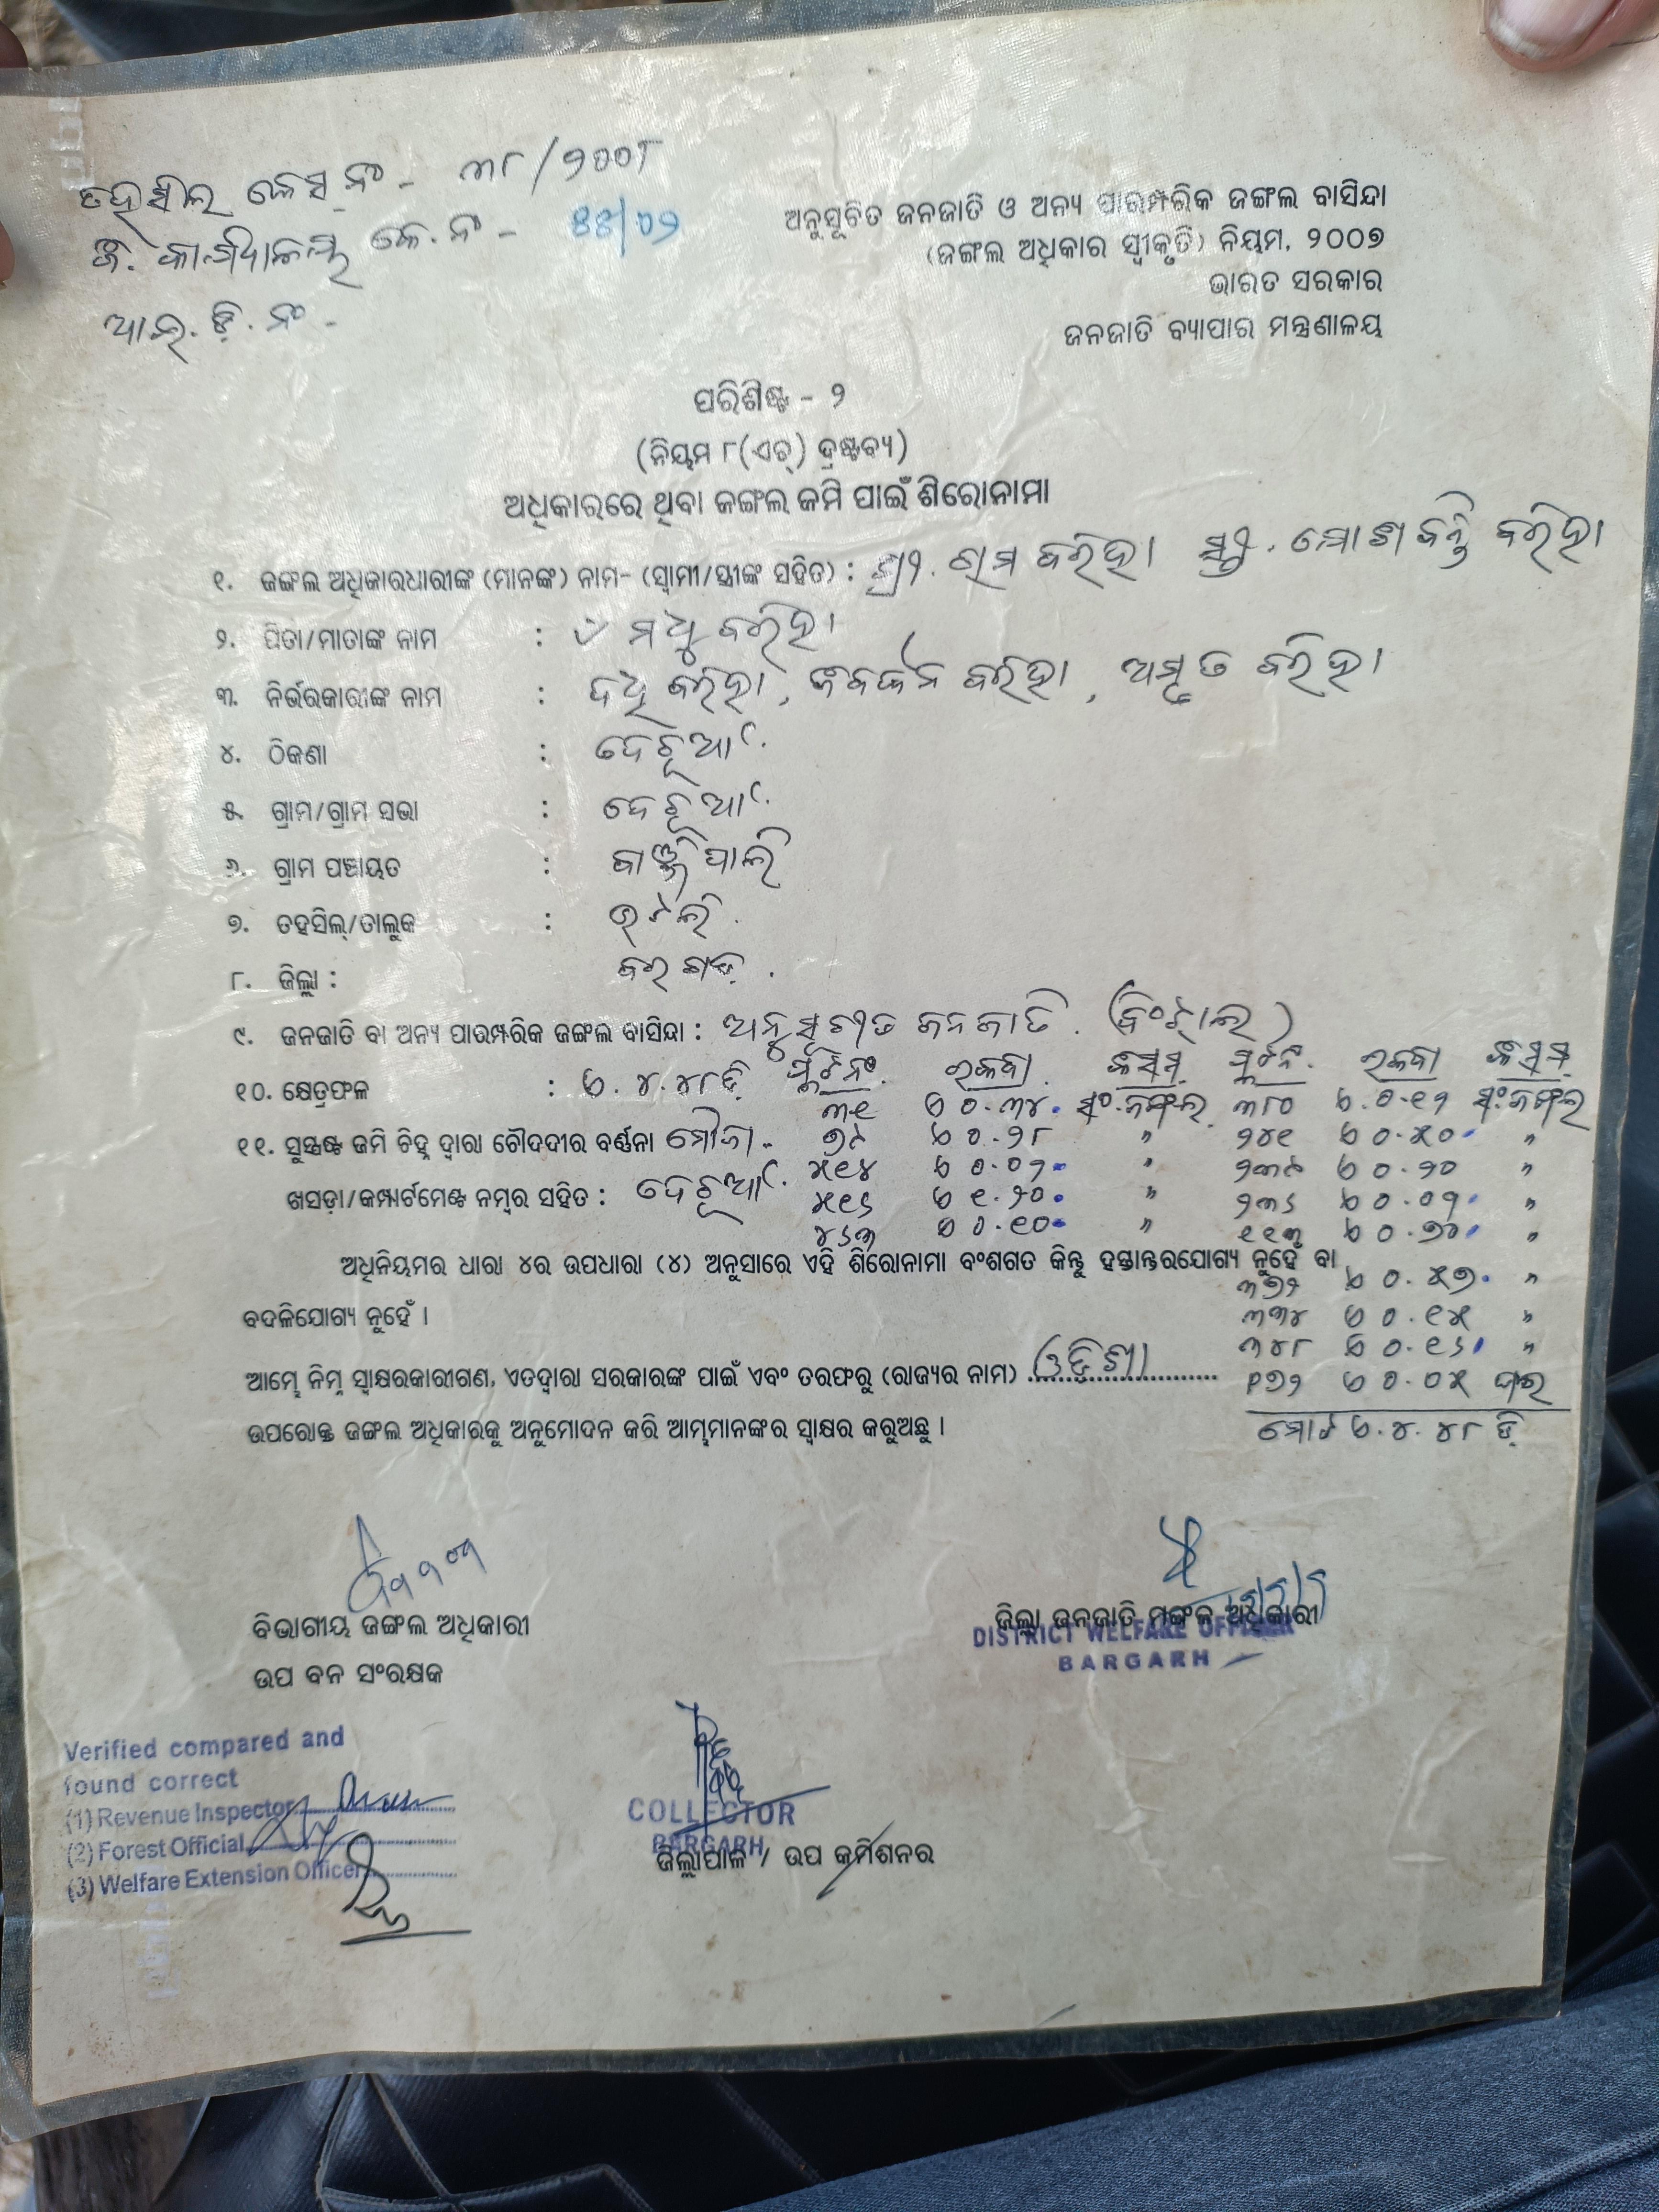 ତହସୀଲ କେସ୍ ନଂ - ୩୮/୨୦୦୮
ଜି. କାର୍ଯ୍ୟାଳୟ କେ. ନଂ -
ଆଇ. ଡି. ନଂ -
ଅନୁସୂଚିତ ଜନଜାତି ଓ ଅନ୍ୟ ପାରମ୍ପରିକ ଜଙ୍ଗଲ ବାସିନ୍ଦା
(ଜଙ୍ଗଲ ଅଧିକାର ସ୍ୱୀକୃତି) ନିୟମ, ୨୦୦୭
ଭାରତ ସରକାର
ଜନଜାତି ବ୍ୟାପାର ମନ୍ତ୍ରଣାଳୟ
ପରିଶିଷ୍ଟ - ୨
(ନିୟମ ୮(ଏଚ୍) ଦ୍ରଷ୍ଟବ୍ୟ)
ଅଧିକାରରେ ଥିବା ଜଙ୍ଗଲ ଜମି ପାଇଁ ଶିରୋନାମା
୧. ଜଙ୍ଗଲ ଅଧିକାରଧାରୀଙ୍କ (ମାନଙ୍କ) ନାମ- (ସ୍ୱାମୀ/ସ୍ତ୍ରୀଙ୍କ ସହିତ) : ବରିହା ବରିହା
୨. ପିତା/ମାତାଙ୍କ ନାମ : ମଧୁ ବରିହା
୩. ନିର୍ଭରକାରୀଙ୍କ ନାମ : ଦଧି ବରିହା, ବରିହା, ଅମୃତ ବରିହା
୪. ଠିକଣା : ଦେଚୂଆଁ.
୫. ଗ୍ରାମ/ଗ୍ରାମ ସଭା : ଦେଚୂଆଁ.
୬. ଗ୍ରାମ ପଞ୍ଚାୟତ : ବାଞ୍ଜିପାଲି
୭. ତହସିଲ୍/ତାଲୁକ : ଭଟଲି.
୮. ଜିଲ୍ଲା : ବରଗଡ଼.
୯. ଜନଜାତି ବା ଅନ୍ୟ ପାରମ୍ପରିକ ଜଙ୍ଗଲ ବାସିନ୍ଦା : ଅନୁସୂଚୀତ ଜନଜାତି. (ବିଂଝାଲ)
୧୦. କ୍ଷେତ୍ରଫଳ : ଏ. ୪.୪୮ଡି ପ୍ଲଟ ନଂ. ରକବା. କିସମ୍ ପ୍ଲଟ ନଂ. ରକବା କିସମ୍
୩୧ ଏ ୦.୩୪. ସଂ.ଜଙ୍ଗଲ ୩୮୦ ଏ.୦.୧୨ ସଂ.ଜଙ୍ଗଲ
୧୧. ସୁସ୍ପଷ୍ଟ ଜମି ଚିହ୍ନ ଦ୍ୱାରା ଚୌଦଦୀର ବର୍ଣ୍ଣନା ମୌଜା - ୭୯ ଏ ୦.୨୮ " ୨୪୧ ଏ ୦.୫୦ "
୫୧୪ ଏ ୦.୦୨ " ୨୩୯ ଏ ୦.୨୦ "
ଖସଡ଼ା/କମ୍ପାର୍ଟମେଣ୍ଟ ନମ୍ବର ସହିତ : ଦେଚୂଆଁ. ୫୧୬ ଏ ୧.୨୦ " ୨୩୬ ଏ ୦.୦୨ "
୪୬୩ ଏ ୦.୧୦ " ୧୧୩ ଏ ୦.୭୪ "
ଅଧିନିୟମର ଧାରା ୪ର ଉପଧାରା (୪) ଅନୁସାରେ ଏହି ଶିରୋନାମା ବଂଶଗତ କିନ୍ତୁ ହସ୍ତାନ୍ତରଯୋଗ୍ୟ ନୁହେଁ ବା
୩୭୨ ଏ ୦.୫୭ "
ବଦଳିଯୋଗ୍ୟ ନୁହେଁ । ୩୩୪ ଏ ୦.୧୫ "
୩୪୮ ଏ ୦.୧୬ "
ଆମ୍ଭେ ନିମ୍ନ ସ୍ୱାକ୍ଷରକାରୀଗଣ, ଏତଦ୍ୱାରା ସରକାରଙ୍କ ପାଇଁ ଏବଂ ତରଫରୁ (ରାଜ୍ୟର ନାମ) ଓଡ଼ିଶା
P୭୨ ଏ ୦.୦୫
ଉପରୋକ୍ତ ଜଙ୍ଗଲ ଅଧିକାରକୁ ଅନୁମୋଦନ କରି ଆମ୍ଭମାନଙ୍କର ସ୍ୱାକ୍ଷର କରୁଅଛୁ । ମୋଟ ଏ.୪.୪୮ ଡି
ବିଭାଗୀୟ ଜଙ୍ଗଲ ଅଧିକାରୀ
ଉପ ବନ ସଂରକ୍ଷକ
ଜିଲ୍ଲା ଜନଜାତି ମଙ୍ଗଳ ଅଧିକାରୀ
DISTRICT WELFARE OFFICER
BARGARH
Verified compared and
found correct
(1) Revenue Inspector
(2) Forest Official
(3) Welfare Extension Officer
COLLECTOR
BARGARH
ଜିଲ୍ଲାପାଳ / ଉପ କମିଶନର